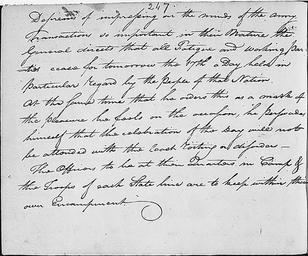 247
Desirous of impressing on the minds of the Army
transactions so important in their Nature the
General directs that all Fatigue and working Par-
ties cease for tomorrow the 17th a Day held in
particular Regard by the People of that Nation.
At the same time that he orders this as a mark of
the pleasure he feels on the occasion, he perswades
himself that the celebration of the day will not
be attended with the least Rioting or disorder -
The Officers to be at their Quarters in Camp &
the Troops of each State line are to keep within their
own Encampment